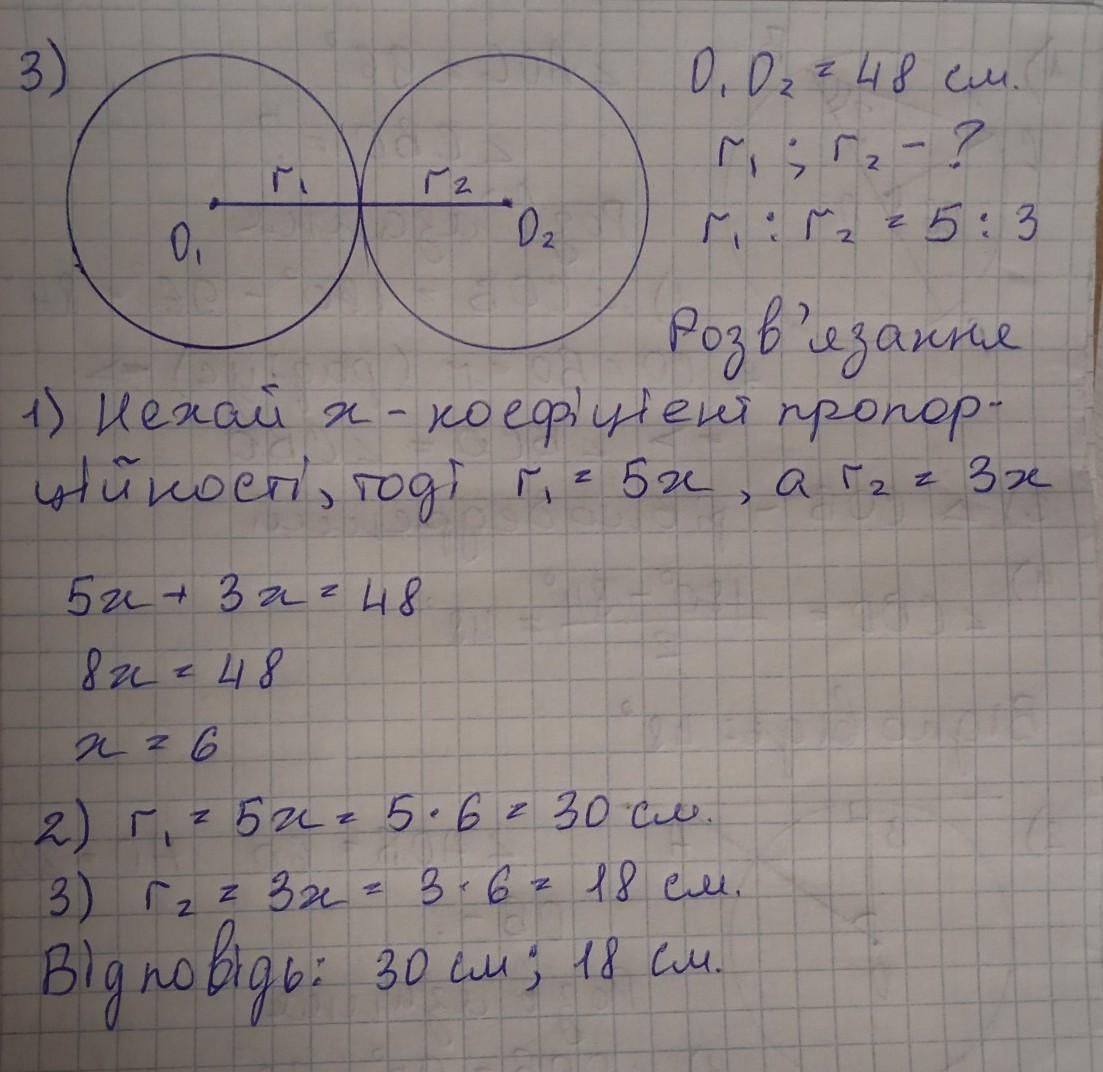 3)
r₁ r₂
O₁ O₂
O₁O₂ = 48 см.
r₁ ; r₂ - ?
r₁ : r₂ = 5 : 3
Розв'язання
1) Нехай x - коефіцієнт пропор-
ційності, тоді r₁ = 5x, а r₂ = 3x
5x + 3x = 48
8x = 48
x = 6
2) r₁ = 5x = 5·6 = 30 см.
3) r₂ = 3x = 3·6 = 18 см.
Відповідь: 30 см; 18 см.